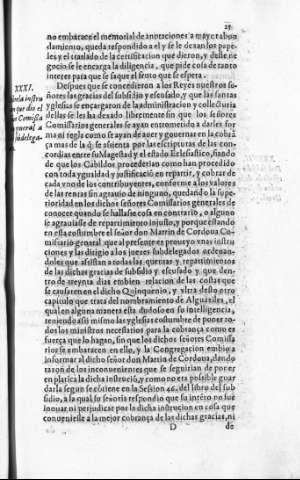 25
no embarace el memorial de anotaciones a mayor abun
damiento, queda respondido a el y se le dexan los pape
les y el traslado de la certificacion que dieron, y deste ne
gocio se le encarga la diligencia, que pide cosa de tanto
interes para que se saque el fruto que se espera.
XXXI.
Despues que se concedieron a los Reyes nuestros se
ñores las gracias del subsidio y escusado, y que las santas
yglesias se encargaron de la administracion y collecturia
dellas se les ha dexado libremente sin que los señores
Comissarios generales se ayan entremetido a darles for
ma ni regla como se ayan de auer y gouernar en la cobrã
ça mas de la q̃ se asienta por las escripturas de las con
cordias entre su Magestad y el estado Eclesiastico, fiando
de que los Cabildos procederian como han procedido
con toda ygualdad y justificacion en repartir, y cobrar de
cada vno de los contribuyentes, conforme a los valores
de las rentas sin agrauio de ninguno, quedando la supe
rioridad en los dichos señores Comissarios generales de
conocer quando se hallasse cosa en contrario, o alguno
se agrauiasse de repartimiento injusto, y porque estando
en esta costumbre el señor don Martin de Cordoua Co-
missario general que al presente es proueyo vnas instru
ciones y las dirigio a los juezes subdelegados ordenan-
doles que assistan a todas las quentas y repartimientos
de las dichas gracias de subsidio y escusado y que den-
tro de treynta dias embien relacion de las costas que
se causaren en el dicho Quinquenio, y vltra desto otro
capitulo que trata del nombramiento de Alguaziles, el
qual en alguna manera esta dudoso en su inteligencia,
teniendo assi mismo las yglesias costumbre de poner to-
dos los ministros necessarios para la cobrança como es
fuerça que lo hagan, sin que los dichos señores Comissa
rios se embaracen en ello, y la Congregacion embio a
informar al dicho señor don Martin de Cordoua, dando
razon de los inconuenientes que se seguirian de poner
en platica la dicha instrució, y como no era possible guar
darla segun se contiene en la Session 46. del libro del sub
sidio, a la qual su señoria respondio que su intéto no fue
inouar ni perjudicar por la dicha instrucion en cosa que
conueniesse a la mejor cobrança de las dichas gracias, ni
D de